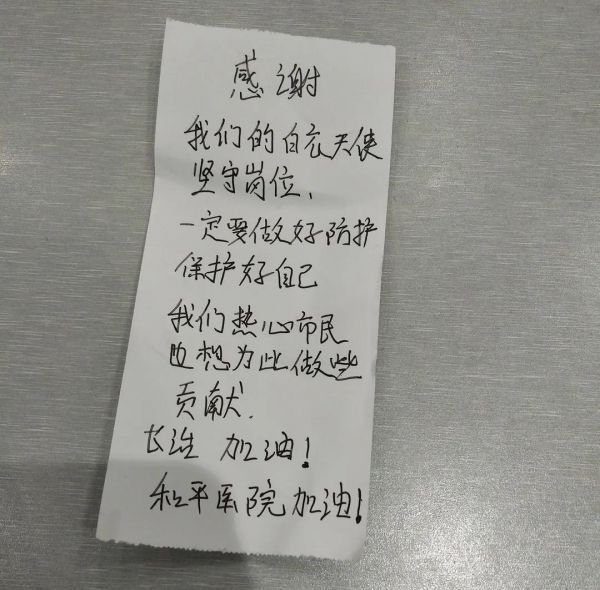 感谢
我们的白衣天使
坚守岗位、
一定要做好防护
保护好自己
我们热心市民
也想为此做些
贡献.
长治 加油!
和平医院加油!